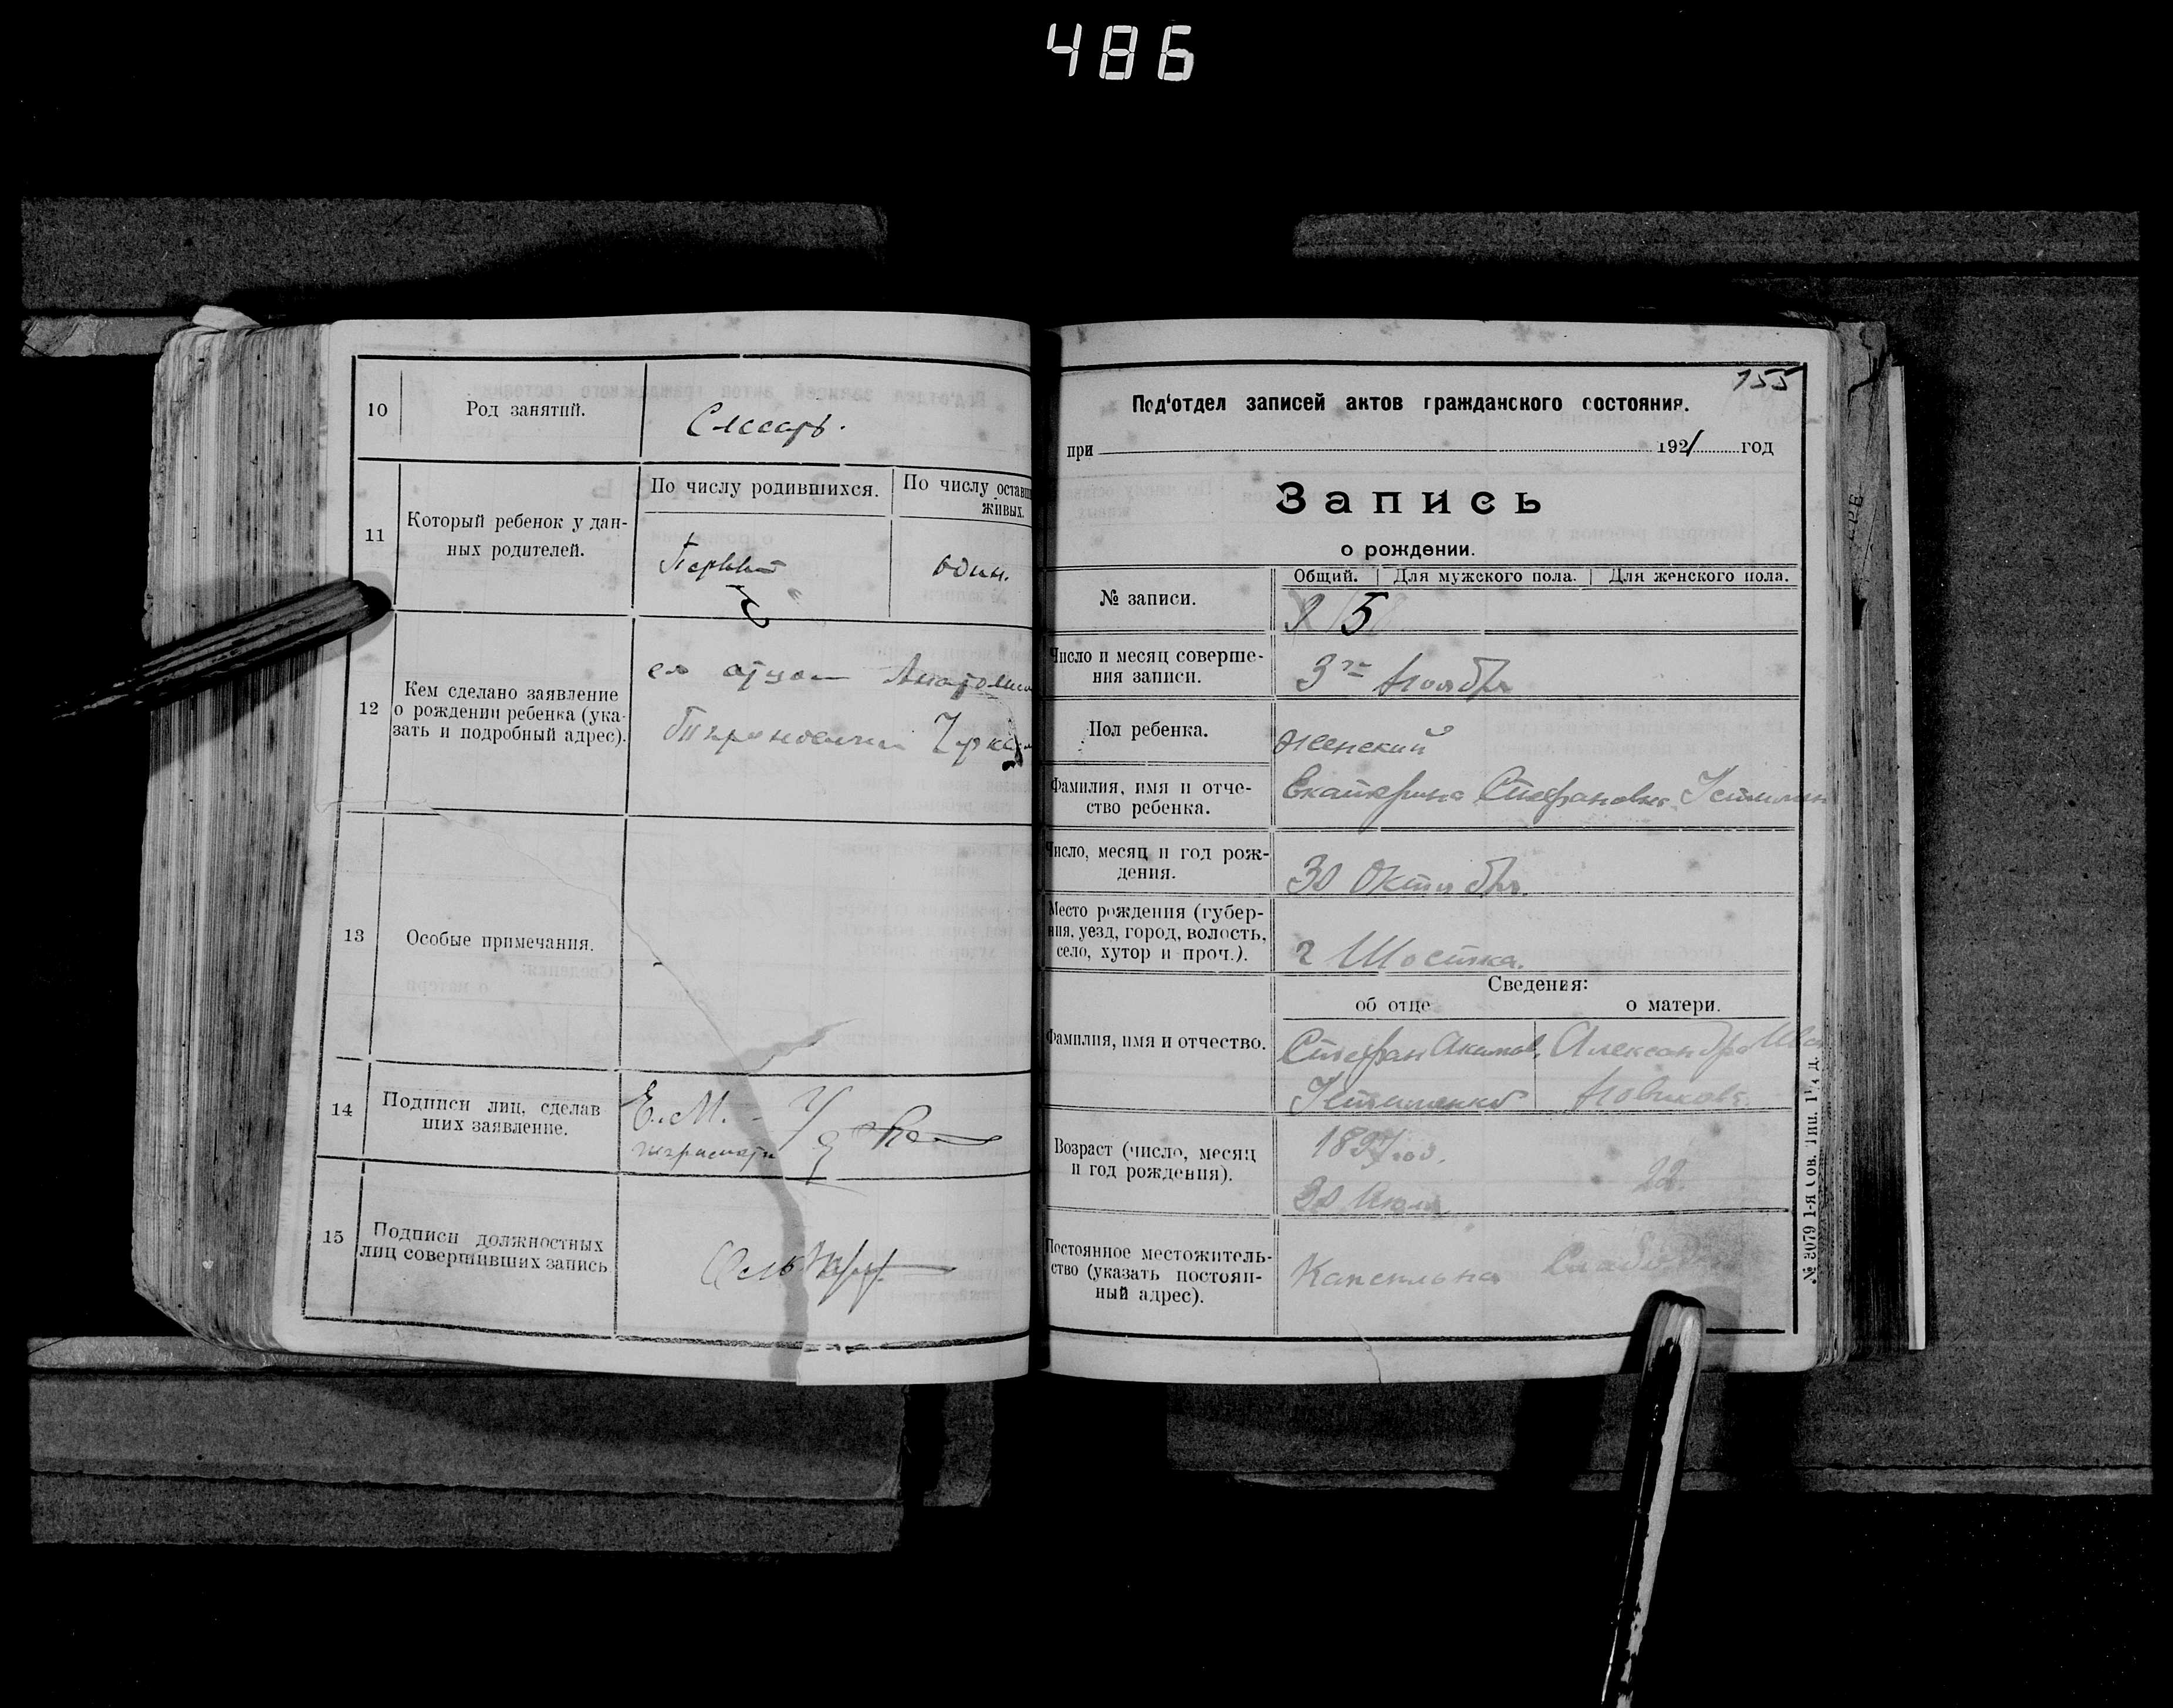 486
10 Род занятий. Слесарь.
11 Который ребенок у дан-
ных родителей.
По числу родившихся. По числу оставш
живых.
Первый один.
12 Кем сделано заявление
о рождении ребенка (ука-
зать и подробный адрес).
его отцом
13 Особые примечания.
14 Подписи лиц, сделав
ших заявление.
Е. М. -
15 Подписи должностных
лиц совершивших запись
155
Под‘отдел записей актов гражданского состояния.
при 1921 год
Запись
о рождении.
№ записи.
Общий. Для мужского пола. Для женского пола.
5
Число и месяц соверше-
ния записи.
3го Ноября
Пол ребенка.
женский
Фамилия, имя и отче-
ство ребенка.
Екатерина Стефановна Устимен
Число, месяц и год рож-
дения.
30 Октября.
Место рождения (губер-
ния, уезд, город, волость,
село, хутор и проч.).
г Шостка.
Сведения:
об отце о матери.
Фамилия, имя и отчество.
Стефан Акимов. Александра
Устименко Новикова
Возраст (число, месяц
и год рождения).
1897 год.
30 Июля 22.
Постоянное местожитель-
ство (указать постоян-
ный адрес).
Капсульна Слобода
№ 3079 1-я Сов. Тип. 1¼ д.